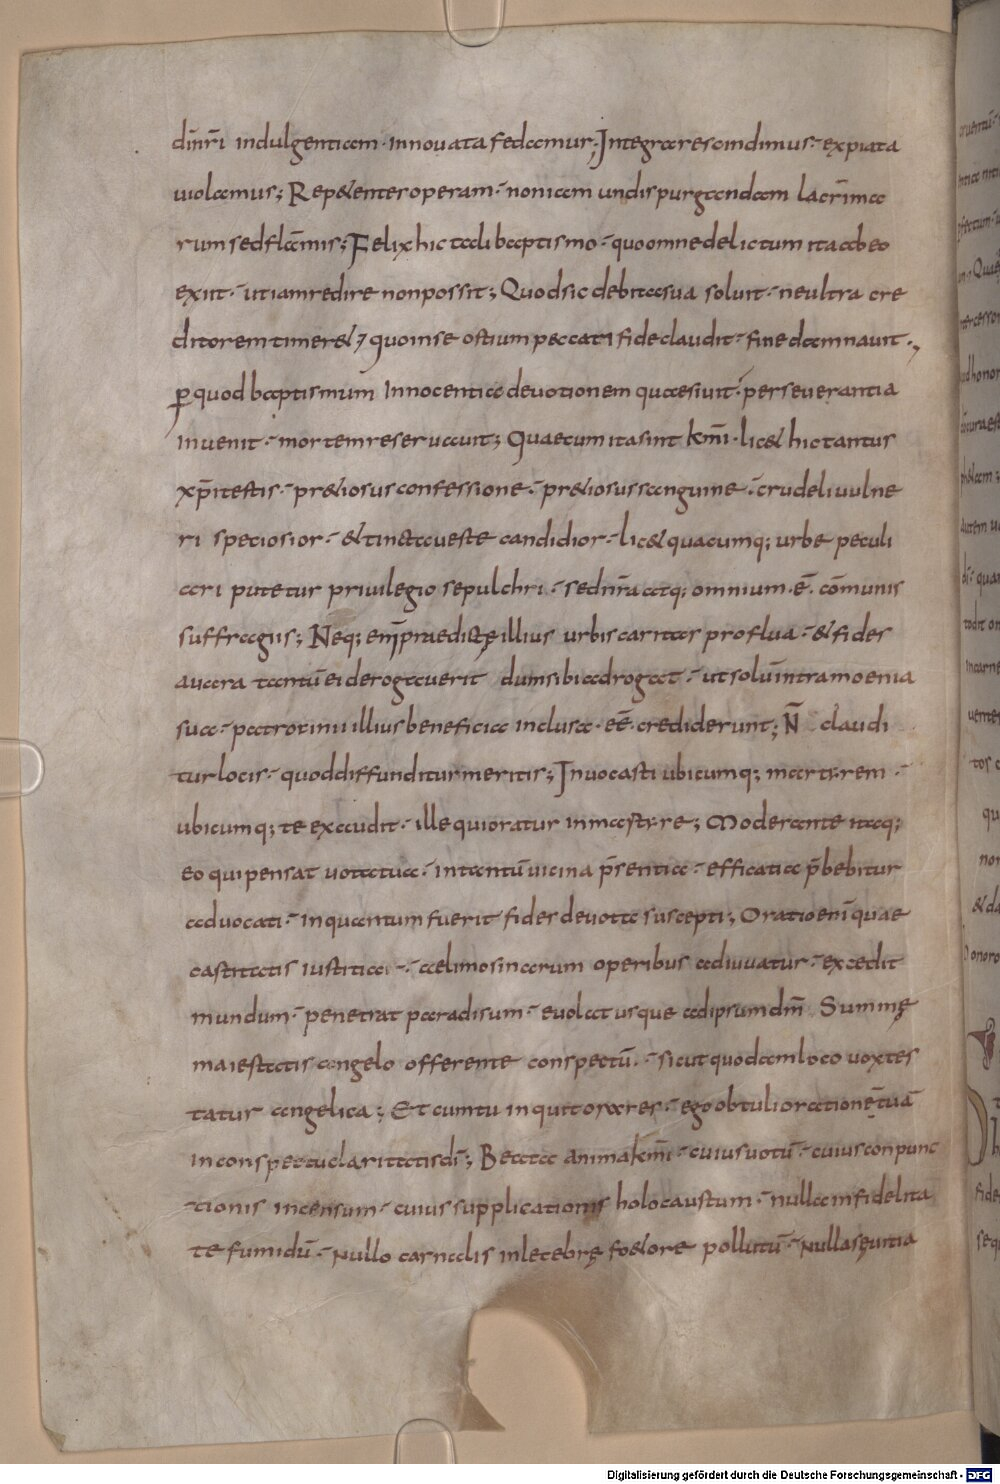 dīnr̄i indulgentiam · innovata fedamur; Integra rescindimus · expiata
uiolamus; Rep&enter operam · non iam undis purgandam lacrīma
rum sed flāmis; Felix hic tali baptismo · quo omne delictum ita abeo
exiit · ut iam redire non possit; Quod sic debita sua soluit · ne ultra cre
ditorem timer&; quo in se ostium peccati fide claudit · fine damnauit ·,
ꝑ quod baptismum Innocentia devotionem quaesiuit · perseuerantia
inuenit · mortem reseruauit; Quae cum ita sint km̄i · lic& hic tantus
xp̄i testis · pr&iosus confessione · pr&iosus sanguine · crudeli uulne
ri speciosior · & tincta ueste candidior · lic& quacumq; urbe peculi
ari putetur priuilegio sepulchri · sed nr̄a atq; omnium · ē · cōmunis
suffragiis; Neq; enī praedictę illius urbis caritas proflua · & fides
auara tantū ei derogauerit dum sibi adrogat · ut solū intra moenia
sua · patrocinii illius beneficia inclusa · eē crediderunt; N̄ claudi
tur locis · quod diffunditur meritis; Inuocasti ubicumq; martyrem ·
ubicumq; te exaudit · ille qui oratur in martyre; Moderante itaq;
eo qui pensat uota tua · in tantū uicina p̄sentia · efficatia p̄bebitur
aduocati · in quantum fuerit fides deuota suscepti; Oratio enī quae
castitatis iustitiae · aelimosinarum operibus adiuuatur · excedit
mundum · penetrat paradisum · euolat usque ad ipsum dm̄ Summę
maiestatis angelo offerente conspectū · sicut quodam loco uox tes
tatur angelica; Et cum tu inquit orares · ego obtuli orationē tuā
in conspectu claritatis dī; Beata anima km̄i · cuius uotū · cuius conpunc
tionis incensum · cuius supplicationis holocaustum · nulla infidelita
te fumidū · Nullo carnalis inlecebrę foetore pollutū · Nulla sęuitia
Digitalisierung gefördert durch die Deutsche Forschungsgemeinschaft - DFG